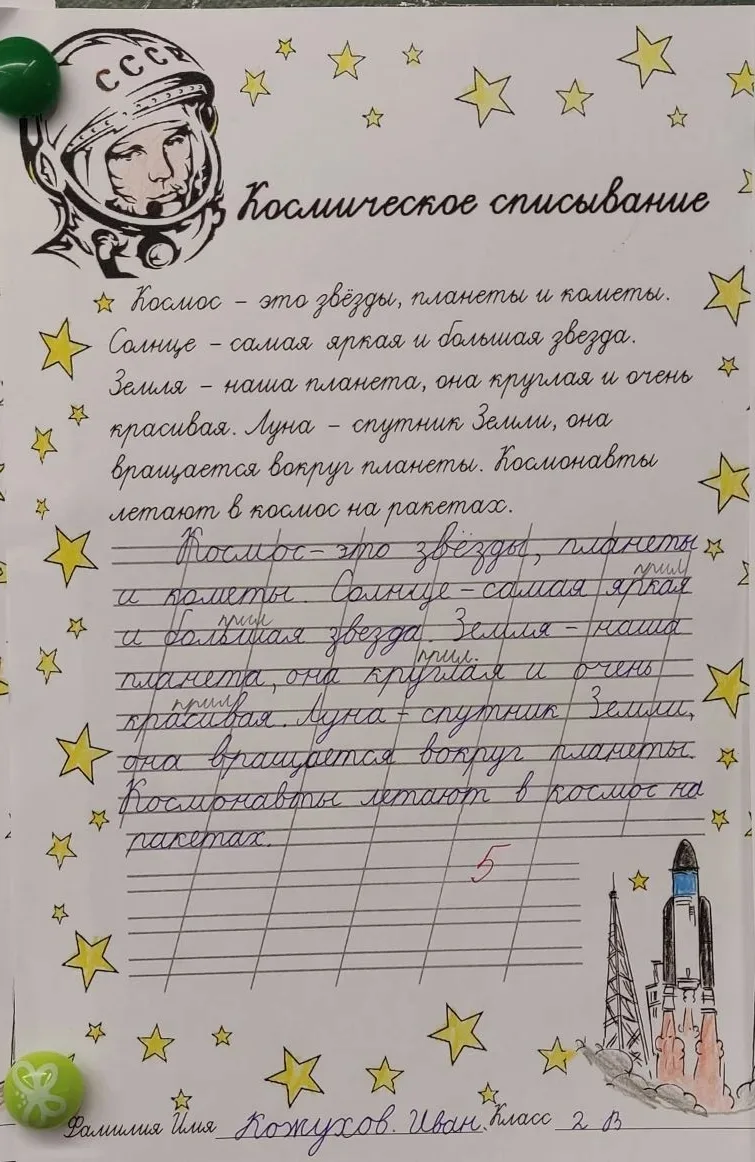 СССР
Космическое списывание
Космос - это звёзды, планеты и кометы.
Солнце - самая яркая и большая звезда.
Земля - наша планета, она круглая и очень
красивая. Луна - спутник Земли, она
вращается вокруг планеты. Космонавты
летают в космос на ракетах.
Космос - это звёзды, планеты
прил
и кометы. Солнце - самая яркая
прил
и большая звезда. Земля - наша
прил.
планета, она круглая и очень
прил
красивая. Луна - спутник Земли,
она вращается вокруг планеты.
Космонавты летают в космос на
ракетах.
5
Фамилия Имя Кожухов. Иван. Класс 2 В